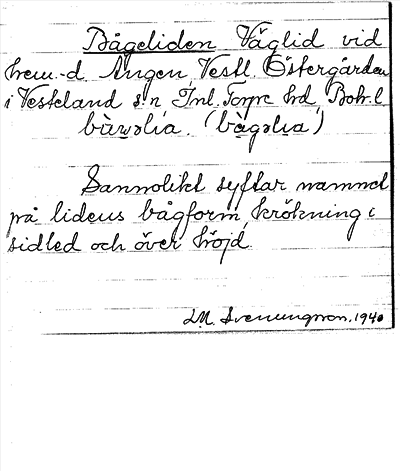 Bågeliden Väglid vid
hem.-d. Ängen, Vestl. Östergården
i Vesteland s:n Inl. Torpe hd, Bohr. l
bàωəlia. (bàgəlıa)
Sannolikt syftar namnet
på lidens bågform, krökning i
sidled och över höjd.
S.M. Svenungsson. 1940